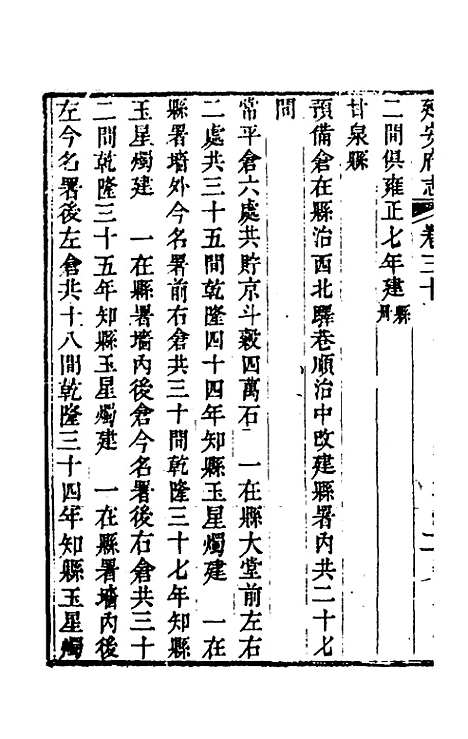 延安府志 卷三十 二
二間俱雍正七年建縣冊
甘泉縣
預備倉在縣治西北驛巷順治中改建縣署內共二十七
間
常平倉六處共貯京斗穀四萬石 一在縣大堂前左右
二處共三十五間乾隆四十四年知縣玉星燭建 一在
縣署墻外今名署前右倉共三十間乾隆三十七年知縣
玉星燭建 一在縣署墻內後倉今名署後右倉共三十
二間乾隆三十五年知縣玉星燭建 一在縣署墻內後
左今名署後左倉共十八間乾隆三十四年知縣玉星燭